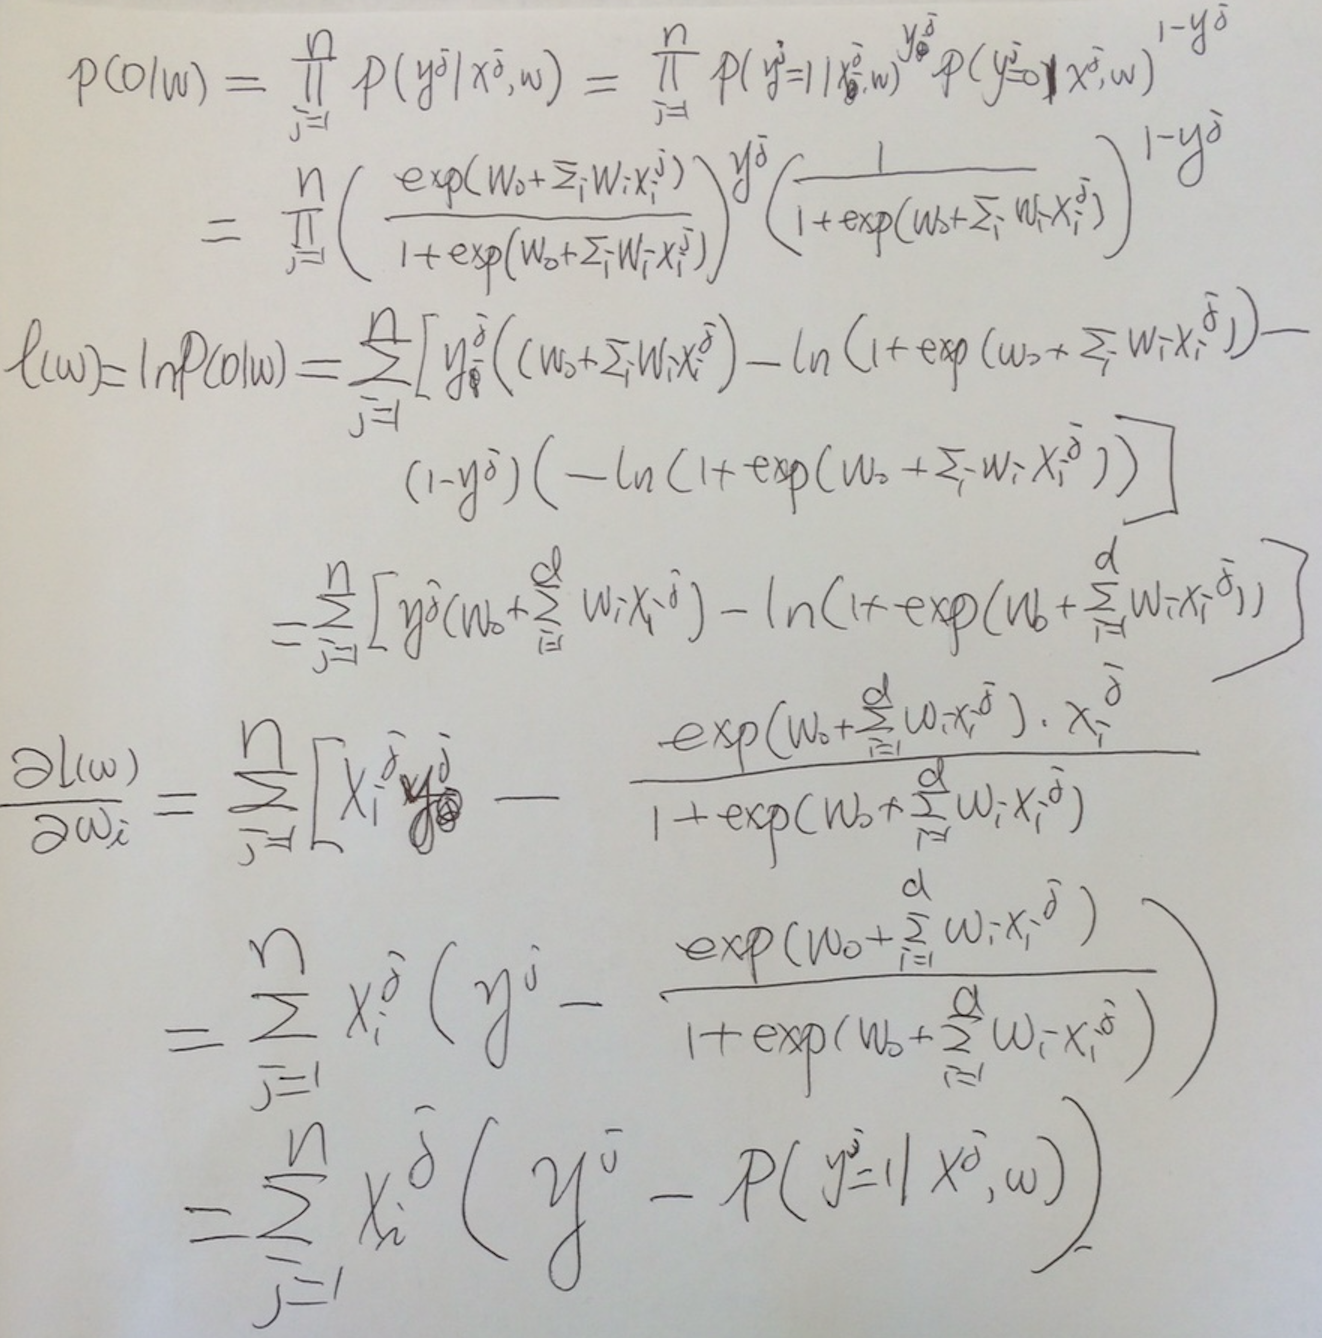 P(D|w) = ∏_{j=1}^{n} P(y^j|x^j,w) = ∏_{j=1}^{n} P(y^j=1|x^j,w)^{y^j} P(y^j=0|x^j,w)^{1-y^j}
= ∏_{j=1}^{n} ( exp(w_0+Σ_i w_i x_i^j) / 1+exp(w_0+Σ_i w_i x_i^j) )^{y^j} ( 1 / 1+exp(w_0+Σ_i w_i x_i^j) )^{1-y^j}
l(w) = ln P(D|w) = Σ_{j=1}^{n} [ y^j ((w_0+Σ_i w_i x_i^j) - ln(1+exp(w_0+Σ_i w_i x_i^j)) -
(1-y^j)(-ln(1+exp(w_0+Σ_i w_i x_i^j)) ]
= Σ_{j=1}^{n} [ y^j(w_0+Σ_{i=1}^{d} w_i x_i^j) - ln(1+exp(w_0+Σ_{i=1}^{d} w_i x_i^j)) ]
∂l(w)/∂w_i = Σ_{j=1}^{n} [ x_i^j y^j - exp(w_0+Σ_{i=1}^{d} w_i x_i^j)·x_i^j / 1+exp(w_0+Σ_{i=1}^{d} w_i x_i^j)
= Σ_{j=1}^{n} x_i^j ( y^j - exp(w_0+Σ_{i=1}^{d} w_i x_i^j) / 1+exp(w_0+Σ_{i=1}^{d} w_i x_i^j) )
= Σ_{j=1}^{n} x_i^j ( y^j - P(y^j=1|x^j,w) )